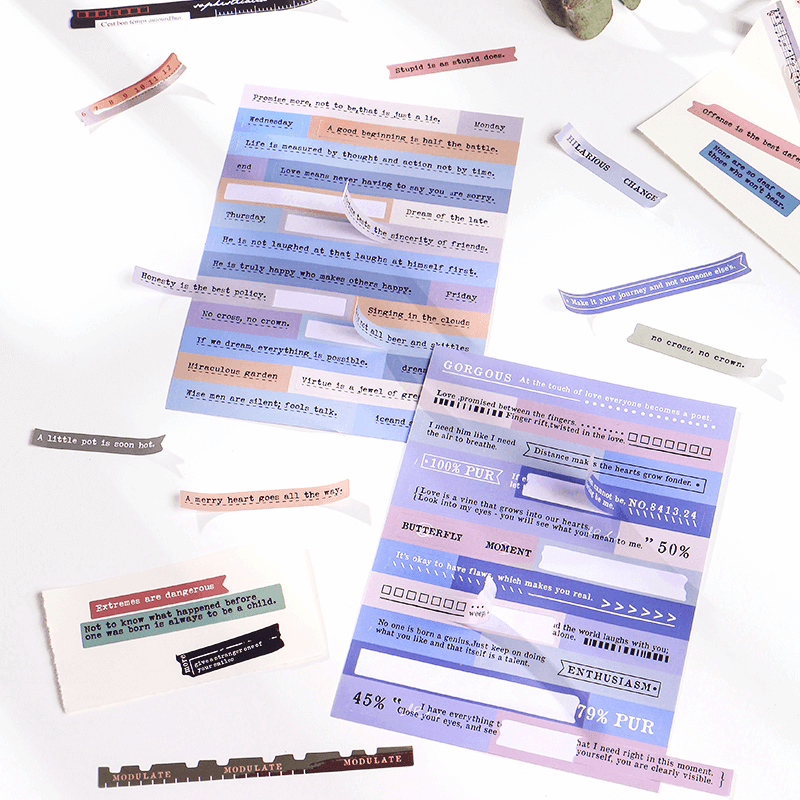 C'est bon temps aujourd'hui
6 7 8 9 10 11 12
Stupid is as stupid does.
Offense is the best defe
None are so deaf as
those who won't hear.
HILARIOUS CHANGE
Make it your journey and not someone else's.
no cross, no crown.
Promise more, not to be,that is just a lie.
Wednesday Monday
A good beginning is half the battle.
Life is measured by thought and action not by time.
end Love means never having to say you are sorry.
Thursday Dream of the late
the sincerity of friends.
He is not laughed at that laughs at himself first.
He is truly happy who makes others happy.
Honesty is the best policy. Friday
No cross, no crown. Singing in the clouds
all beer and skittles
If we dream, everything is possible.
Miraculous garden Virtue is a jewel of
Wise men are silent; fools talk.
A little pot is soon hot.
A merry heart goes all the way.
Extremes are dangerous
Not to know what happened before
one was born is always to be a child.
more
give a stranger one of
your smiles
MODULATE MODULATE MODULATE
GORGOUS At the touch of love everyone becomes a poet.
Love ,promised between the fingers.
Finger rift,twisted in the love.
I need him like I need
the air to breathe.
Distance makes the hearts grow fonder.
100% PUR
cannot be, NO.8413.24
{Love is a vine that grows into our hearts.
{Look into my eyes - you will see what you mean to me. ” 50%
BUTTERFLY MOMENT
It's okay to have flaws, which makes you real. >>>>>>
the world laughs with you;
alone.
No one is born a genius.Just keep on doing
what you like and that itself is a talent.
ENTHUSIASM
45% “ I have everything 79% PUR
Close your eyes, and see
that I need right in this moment.
yourself, you are clearly visible. }